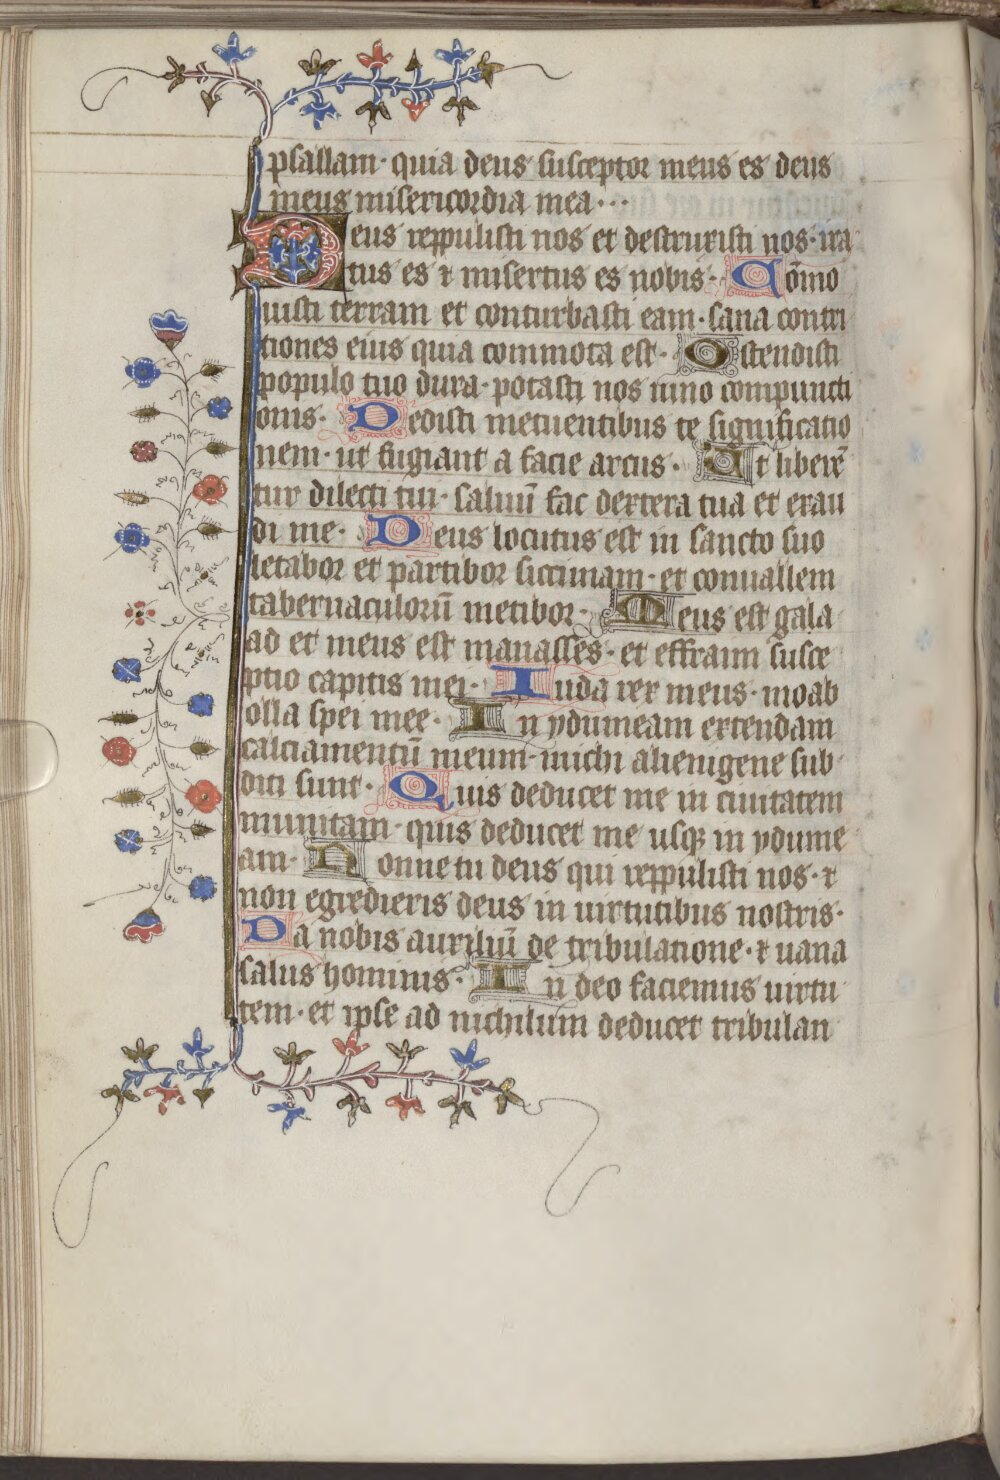 psallam· quia deus susceptor meus es deus
meus misericordia mea···
Deus reppulisti nos et destruxisti nos· ira
tus es ⁊ misertus es nobis· Cōmo
uisti terram et conturbasti eam· sana contri
tiones eius quia commota est· Ostendisti
populo tuo dura· potasti nos uino compuncti
onis· Dedisti metuentibus te significatio
nem· ut fugiant a facie arcus· Ut liberē
tur dilecti tui· saluū fac dextera tua et exau
di me· Deus locutus est in sancto suo
letabor et partibor siccimam· et conuallem
tabernaculorū metibor· Meus est gala
ad et meus est manasses· et effraim susce
ptio capitis mei· Iuda rex meus· moab
olla spei mee· In ydumeam extendam
calciamentū meum· michi alienigene sub
diti sunt· Quis deducet me in ciuitatem
munitam· quis deducet me usqꝫ in ydume
am· Nonne tu deus qui reppulisti nos· ⁊
non egredieris deus in uirtutibus nostris·
Da nobis auxiliū de tribulatione· ⁊ uana
salus hominis· In deo faciemus uirtu
tem· et ipse ad nichilum deducet tribulan